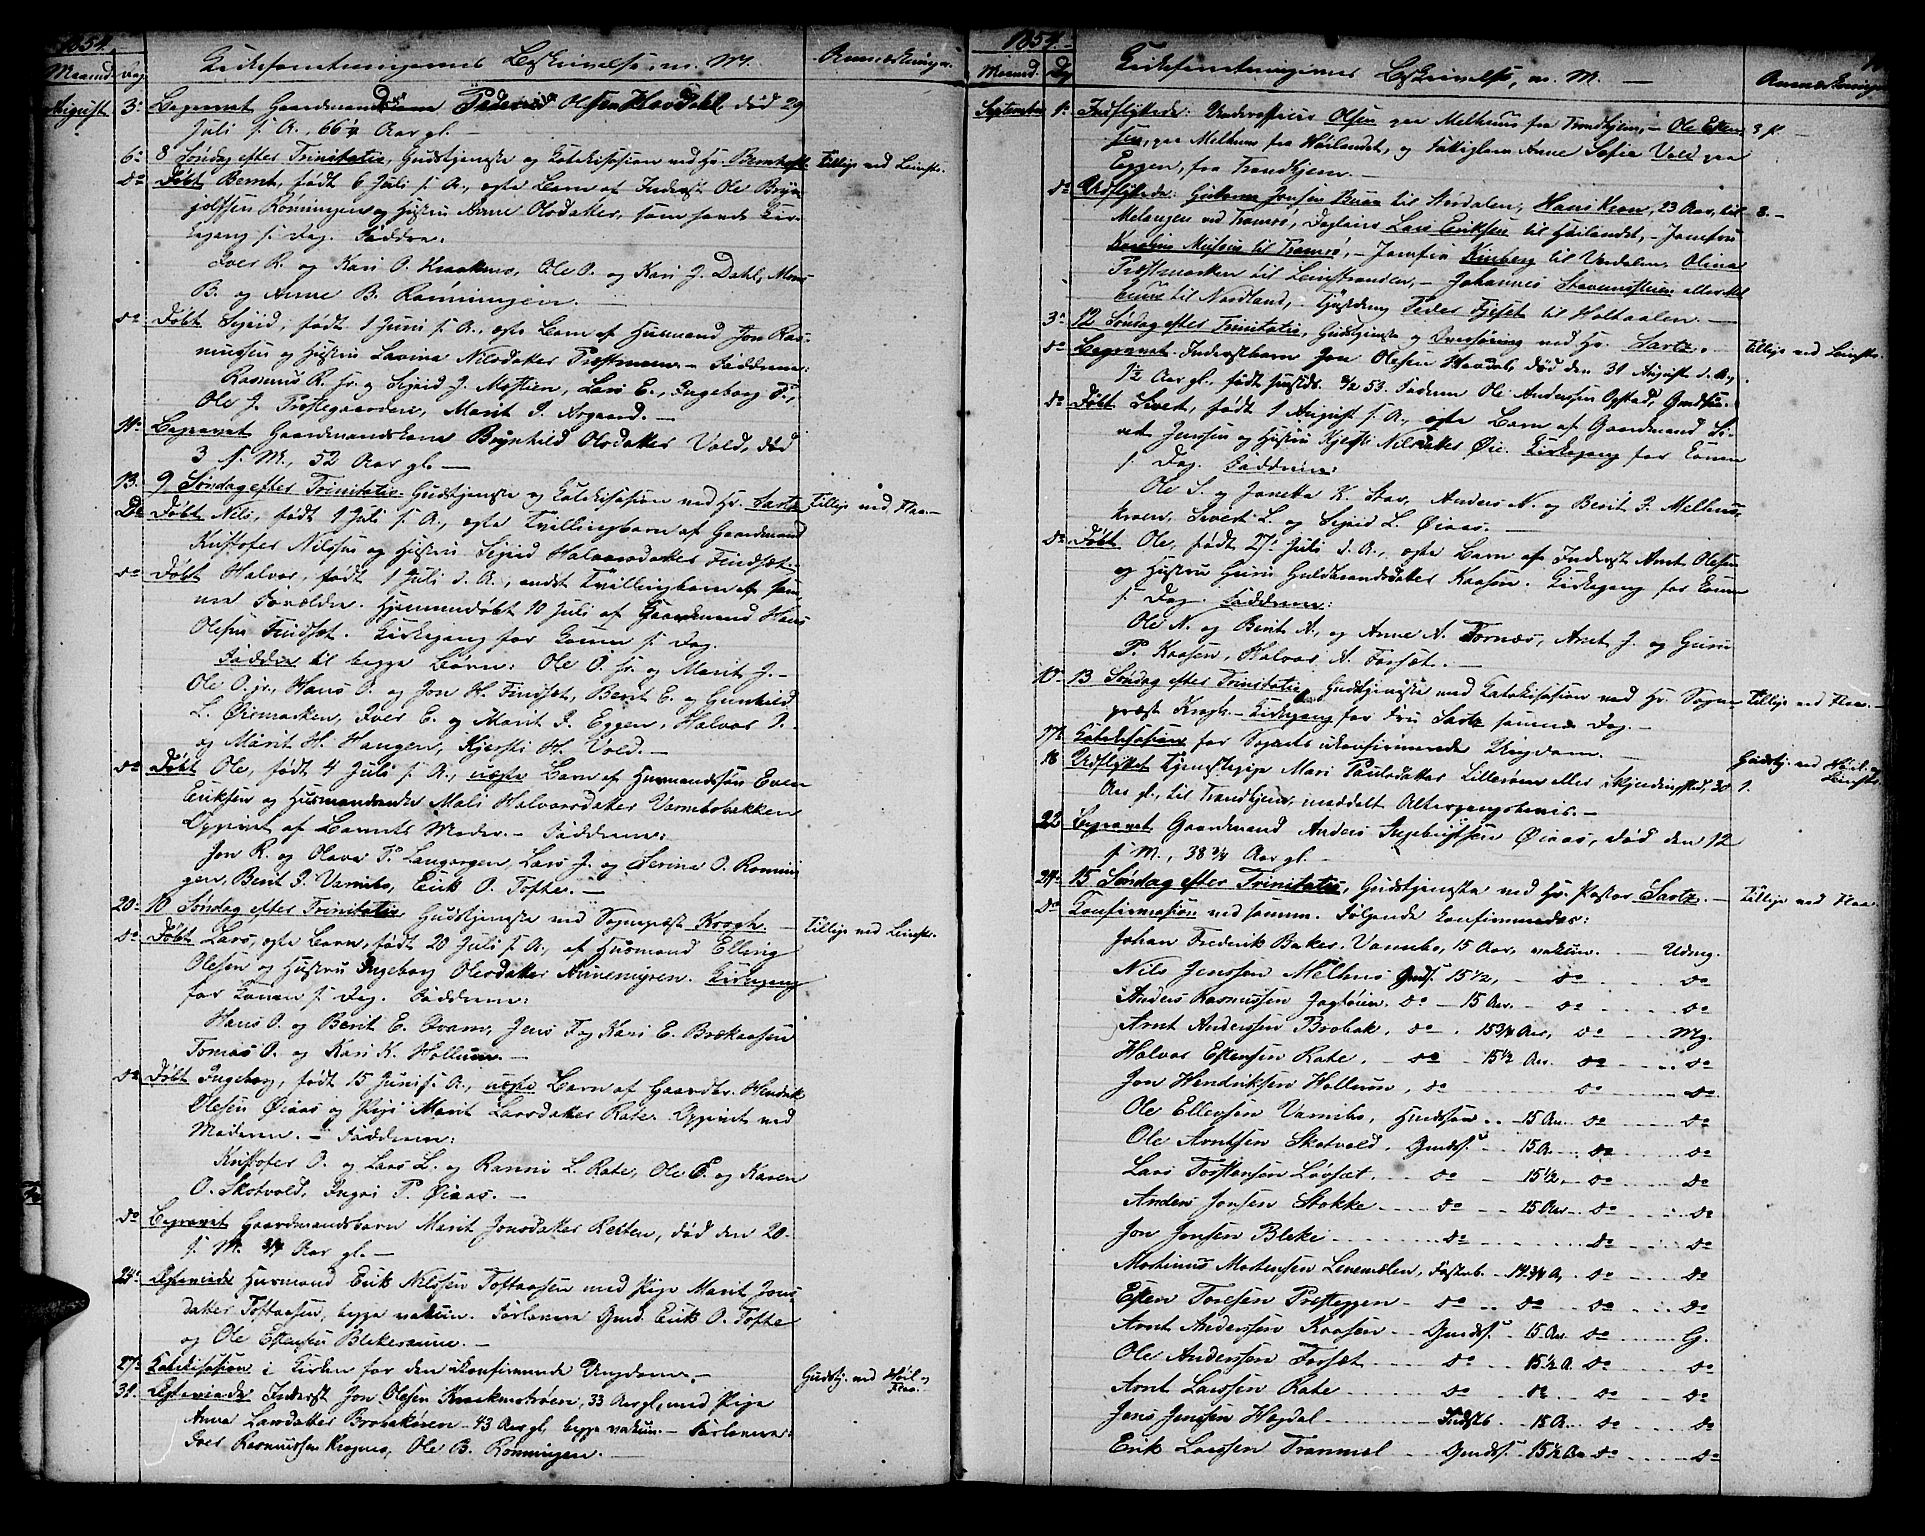 1854.
Maaned. Dag. Kirkeforretningernes Beskrivelse, m. M. Anmærkninger.
August 3. Begravet Gaardmand Peder Olsen Havdahl, død 29
Juli s. A., 66¼ Aar gl. —
6. 8 Søndag efter Trinitatis, Gudstjeneste og Katekisasion ved Hr. Tillige ved Leinstr.
do Døbt Bernt, født 6 Juli s. A., egte Barn af Inderst Ole Bryn-
jolfsen Rønningen og Hustru Anne Olsdatter, som havde Kir-
kegang s. Dag. Faddere:
Iver R. og Kari O. Kraakmo, Ole O. og Kari J. Dahl,
B. og Anne B. Rønningen.
do Døbt Sigrid, født 1 Juni s. A., egte Barn af Husmand Jon Ras-
mussen og Hustru Lavina Nilsdatter — Faddere:
Rasmus R. sr. og Sigrid J. Lars E., Ingeborg P.,
Ole J. Prestegaarden, Marit I.
11. Begravet Gaardmandskone Brynhild Olsdatter Vold, død
3 s. M., 52 Aar gl. —
13. 9 Søndag efter Trinitatis. Gudstjeneste og Katekisasion ved Hr. Sartz. Tillige ved Flaa. —
Do Døbt Nils, født 1 Juli s. A., egte Tvillingbarn af Gaardmand
Kristofer Nilssen og Hustru Sigrid Halvorsdatter Findset.
do Døbt Halvor, født 1 Juli d. A., andet Tvillingbarn af sam-
me Forældre. Hjemmedøbt 10 Juli af Gaardmand Hans
Olesen Findset. Kirkegang for Konen s. Dag.
Faddere til begge Børn: Ole O. sr. og Marit J. —
Ole O. jr., Hans O. og Jon H. Findset, Berit E. og Gunhild
L. Øiemarken, Iver E. og Marit I. Eggen, Halvor I.
og Marit H. Haugen, Kjersti H. Vold. —
do Døbt Ole, født 4 Juli s. A., uegte Barn af Husmandssøn Even
Eriksen og Husmandsenke Mali Halvorsdatter Varmbobakken
Opgivet af Barnets Moder. — Faddere:
Jon R. og Olava P. Langørgen, Lars J. og Serina O. Rønnin-
gen, Berit I. Varmbo, Erik O. Tofte. —
20. 10 Søndag efter Trinitatis, Gudstjeneste ved Sogneprest Krogh. — Tillige ved Leinstr.
do Døbt Lars, egte Barn, født 20 Juli s. A., af Husmand Elling
Olesen og Hustru Ingeborg Olesdatter Annemyren. Kirkegang
for Konen s. Dag. Faddere:
Hans O. og Berit E. Kvam, Jens T. og Kari E. Brekaasen
Tomas O. og Kari K. Hollum. —
do Døbt Ingeborg, født 15 Juni s. A., uegte Barn af Gaardbr. Henrik
Olesen Øiaas og Pige Marit Larsdatter Rate. Opgivet ved
Moderen. — Faddere:
Kristofer O. og Lars L. og Ranni L. Rate, Ole E. og Karen
O. Skotvold, Ingri P. Øiaas. —
do Begravet Gaardmandsbarn Marit Jonsdatter Retten, død den 20
s. M. 3/4 Aar gl. —
24. Egteviede Husmand Erik Nilssen Toftaasen med Pige Marit Jons-
datter Toftaasen, begge vakcin. Forlovere Gmd. Erik O. Tofte
og Ole Estensen Blekesaune. —
27. Katekisasion i Kirken for den ukonfirmerede Ungdom. — Gudstj. ved Høil. og Flaa.
31. Egteviede Inderst Jon Olesen Kraakmotrøen, 33 Aar gl., med Pige
Anne Larsdatter 43 Aar gl., begge vakcin. — Forlovere:
Iver Rasmussen Krogmo, Ole B. Rønningen. —
1854.
Maaned. Dag Kirkeforretningernes Beskrivelse, m. M. — Anmærkninger
September 1. Indflyttede: Underofficer Olsen paa Melhuus fra Trondhjem, — Ole Esten- 3 p. —
sen, paa Melhuus fra Høilandet, og Fattiglem Anne Sofie Vold paa
Eggen, fra Trondhjem. —
do Udflyttede: Guttorm Jonsen til Størdalen, Hans Kron, 23 Aar, til 8. —
Melangen ved Tromsø, Lars Eriksen til Høilandet, — Jomfru
til Tromsø, — Jomfru Kinberg til Verdalen, Olina
Prestmarken til Leinstranden, — Johannes eller Mel-
huus til Nordland, Peder Fjeset til Holtaalen. —
3. 12 Søndag efter Trinitatis, Gudstjeneste og ved Hr. Sartz. Tillige ved Leinstr.
do Begravet Inderstbarn Jon Olesen Havdal, død den 31 August d. A.,
1½ Aar gl., født 3/2 53. Faderen Ole Anderssen Øgstad,
do Døbt Sivert, født 1 August s. A., egte Barn af Gaardmand Si-
vert Jenssen og Hustru Kjersti Nilsdatter Øie. Kirkegang for Konen
s. Dag. Faddere:
Ole S. og Janetta K. Stav, Anders N. og Berit I. Melhus,
Sivert L. og Sigrid L. Øiaas. —
do Døbt Ole, født 27. Juli d. A., egte Barn af Inderst Arnt Olesen
og Hustru Guru Guldbrandsdatter Kaasen. Kirkegang for Konen
s. Dag. Faddere:
Ole N. og Berit A., og Anne A. Fornæs, Arnt J. og Guru
P. Kaasen, Halvor A. Forset. —
10. 13 Søndag efter Trinitatis, Gudstjeneste med Katekisasion ved Hr. Sogne- Tillige ved Flaa. —
prest Krogh. — Kirkegang for Fru Sartz samme Dag. —
17. Katekisasion for Sognets ukonfirmerede Ungdom. Gudstj. ved Høil. og Leinstr.
18 Udflyttet Tjenestepige Mari Paulsdatter Lillerøen eller 30 1.
Aar gl., til Trondhjem, meddelt Altergangsbevis. —
22 Begravet Gaardmand Anders Ingebrigtsen Øiaas, død den 12
s. M., 38 3/4 Aar gl. —
24. 15 Søndag efter Trinitatis, Gudstjeneste ved Hr. Pastor Sartz. — Tillige ved Flaa. —
do Konfirmasion ved samme. Følgende konfirmeredes:
Johan Frederik Baker Varmbo, 15 Aar, vakcin. — Udmg.
Nils Jenssen Melhus Gmds. 15 1/2, — do — do
Anders Rasmussen Jagtøien. do — 15 Aar. — do — do
Arnt Anderssen Brobak. do. 15 3/4 Aar, do — Mg.
Halvor Estensen Rate. do 15 1/2 Aar do — do
Jon Hendriksen Hollum, do do do
Ole Ellevsen Varmbo, Husmds. 15 Aar do — do
Ole Arntsen Skotvold, Gmds. 15 A. do — do
Lars Torstensen Løvset. do 15 1/2. do — do
Anders Jonsen Stokke do 15 Aar do — do
Jon Jonsen Bleke do do do
Martinus Mortensen 14 3/4 A. do do
Esten Toresen Presteggen do do do do
Arnt Anderssen Kaasen Gmds. 15 Aar do G.
Ole Anderssen Forset do 15 1/2 A. do do
Arnt Larssen Rate do do do do
Jens Jenssen Hagdal Indstb. 18 A. do do
Erik Larssen Tranmæl Gmds. 15 1/2 Aar do do